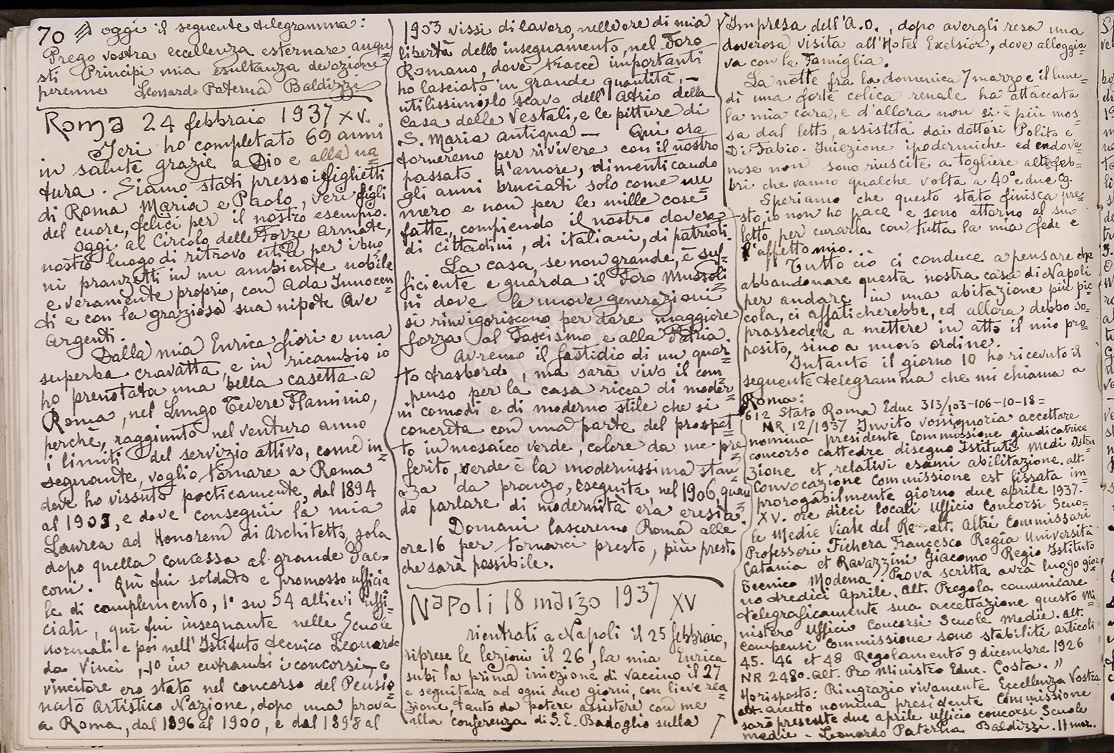 70 oggi il seguente telegramma:
Prego vostra eccellenza esternare augu=
sti Principi mia esultanza devozione
perenne Leonardo Paterna Baldizzi
Roma 24 febbraio 1937 XV.
Ieri ho completato 69 anni
in salute grazie a Dio e alla na=
tura. Siamo stati presso i figlietti
di Roma Maria e Paolo, veri figli
del cuore, felici per il nostro esempio.
Oggi al Circolo delle Forze Armate,
nostro luogo di ritrovo utile per i buo=
ni pranzetti in un ambiente nobile
e veramente proprio, con Ada Innocen=
ti e con la graziosa sua nipote Ave
Argenti.
Dalla mia Enrica fiori e una
superba cravatta, e in ricambio io
ho prenotata una bella casetta a
Roma, nel Lungo Tevere Flaminio,
perche, raggiunto nel venturo anno
i limiti del servizio attivo, come in=
segnante, voglio tornare a Roma
dove ho vissuto poeticamente, dal 1894
al 1903, e dove conseguii la mia
Laurea ad Honorem di Architetto, sola
dopo quella concessa al grande Sac=
coni. Qui fui soldato e promosso ufficia
le di complemento, 1° su 54 allievi uffi=
ciali, qui fui insegnante nelle Scuole
normali e poi nell'Istituto tecnico Leonardo
da Vinci, 1° in entrambi i concorsi, e
vincitore ero stato nel concorso del Pensio=
nato Artistico Nazione, dopo una prova
a Roma, dal 1896 al 1900, e dal 1898 al
1903 vissi di lavoro, nelle ore di mia
libertà dello insegnamento, nel Foro
Romano, dove tracce importanti
ho lasciato in grande quantità, —
utilissimo lo scavo dell'Atrio della
casa delle Vestali, e le pitture di
S. Maria antiqua — Qui ora
torneremo per rivivere con il nostro
passato d'amore, dimenticando
gli anni bruciati solo come nu=
mero e non per le mille cose
fatte, compiendo il nostro dovere
di cittadini, di italiani, di patrioti.
La casa, se non grande, è suf=
ficiente e guarda il Foro Mussoli=
ni dove le nuove generazioni
si rinvigoriscono per dare maggiore
forza al Fascismo e alla Patria.
Avremo il fastidio di un quar=
to trasbordo, ma sarà vivo il com=
penso per la casa ricca di moder=
ni comodi e di moderno stile che si
concreta con una parte del prospet=
to in mosaico verde, colore da me pre=
ferito, verde è la modernissima stan=
za da pranzo, eseguita nel 1906 quan
do parlare di modernità era eresia.
Domani lasceremo Roma alle
ore 16 per tornarci presto, più presto
che sarà possibile.
Napoli 18 marzo 1937 XV
rientrati a Napoli il 25 febbraio,
riprese le lezioni il 26, la mia Enrica
subì la prima iniezione di vaccino il 27
e seguitava ad ogni due giorni, con lieve rea=
zione, tanto da potere assistere con me
alla conferenza di S.E. Badoglio sulla
Impresa dell'A.O., dopo avergli resa una
doverosa visita all'Hotel Excelsior, dove alloggia=
va con la famiglia.
La notte fra la domenica 7 marzo e il lune=
di una forte colica renale ha attaccata
la mia cara, e d'allora non si è più mos=
sa dal letto, assistita dai dottori Polito e
Di Fabio. Iniezione ipodermiche ed endove=
nose non sono riuscite a togliere alte feb=
bri che vanno qualche volta a 40° e due
Speriamo che questo stato finisca pre=
sto, io non ho pace e sono attorno al suo
letto, per curarla con tutta la mia fede e
l'affetto mio.
Tutto ciò ci conduce a pensare che
abbandonare questa nostra casa di Napoli
per andare in una abitazione più pic=
cola, ci affaticherebbe, ed allora debbo so=
prassedere a mettere in atto il mio pro=
posito, sino a nuovo ordine.
Intanto il giorno 10 ho ricevuto il
seguente telegramma che mi chiama a
Roma:
"612 Stato Roma Educ 313/103-106-10-18=
NR 12/1937 Invito vossignoria accettare
nomina presidente Commissione giudicatrice
concorso cattedre disegno Istituti Medi Istru
zione et relativi esami abilitazione. alt.
Convocazione Commissione est fissata im=
prorogabilmente giorno due aprile 1937.
XV. ore dieci locali Ufficio Concorsi Scuo=
le Medie Viale del Re. alt. Altri Commissari
Professori Fichera Francesco Regia Università
Catania et Ravazzini Giacomo Regio Istituto
Tecnico Modena. Prova scritta avrà luogo gior
no tredici Aprile. Alt. Pregola comunicare
telegraficamente sua accettazione questo Mi
nistero Ufficio Concorsi Scuole Medie. Alt.
Compensi Commissione sono stabiliti articoli
45. 46 et 48 Regolamento 9 dicembre 1926
NR 2480. alt. Pro Ministro Educ. Costa. "
Ho risposto: Ringrazio vivamente Eccellenza Vostra
alt. accetto nomina presidente Commissione
sarò presente due aprile ufficio concorsi Scuole
medie - Leonardo Paterna Baldizzi. 11 mar.